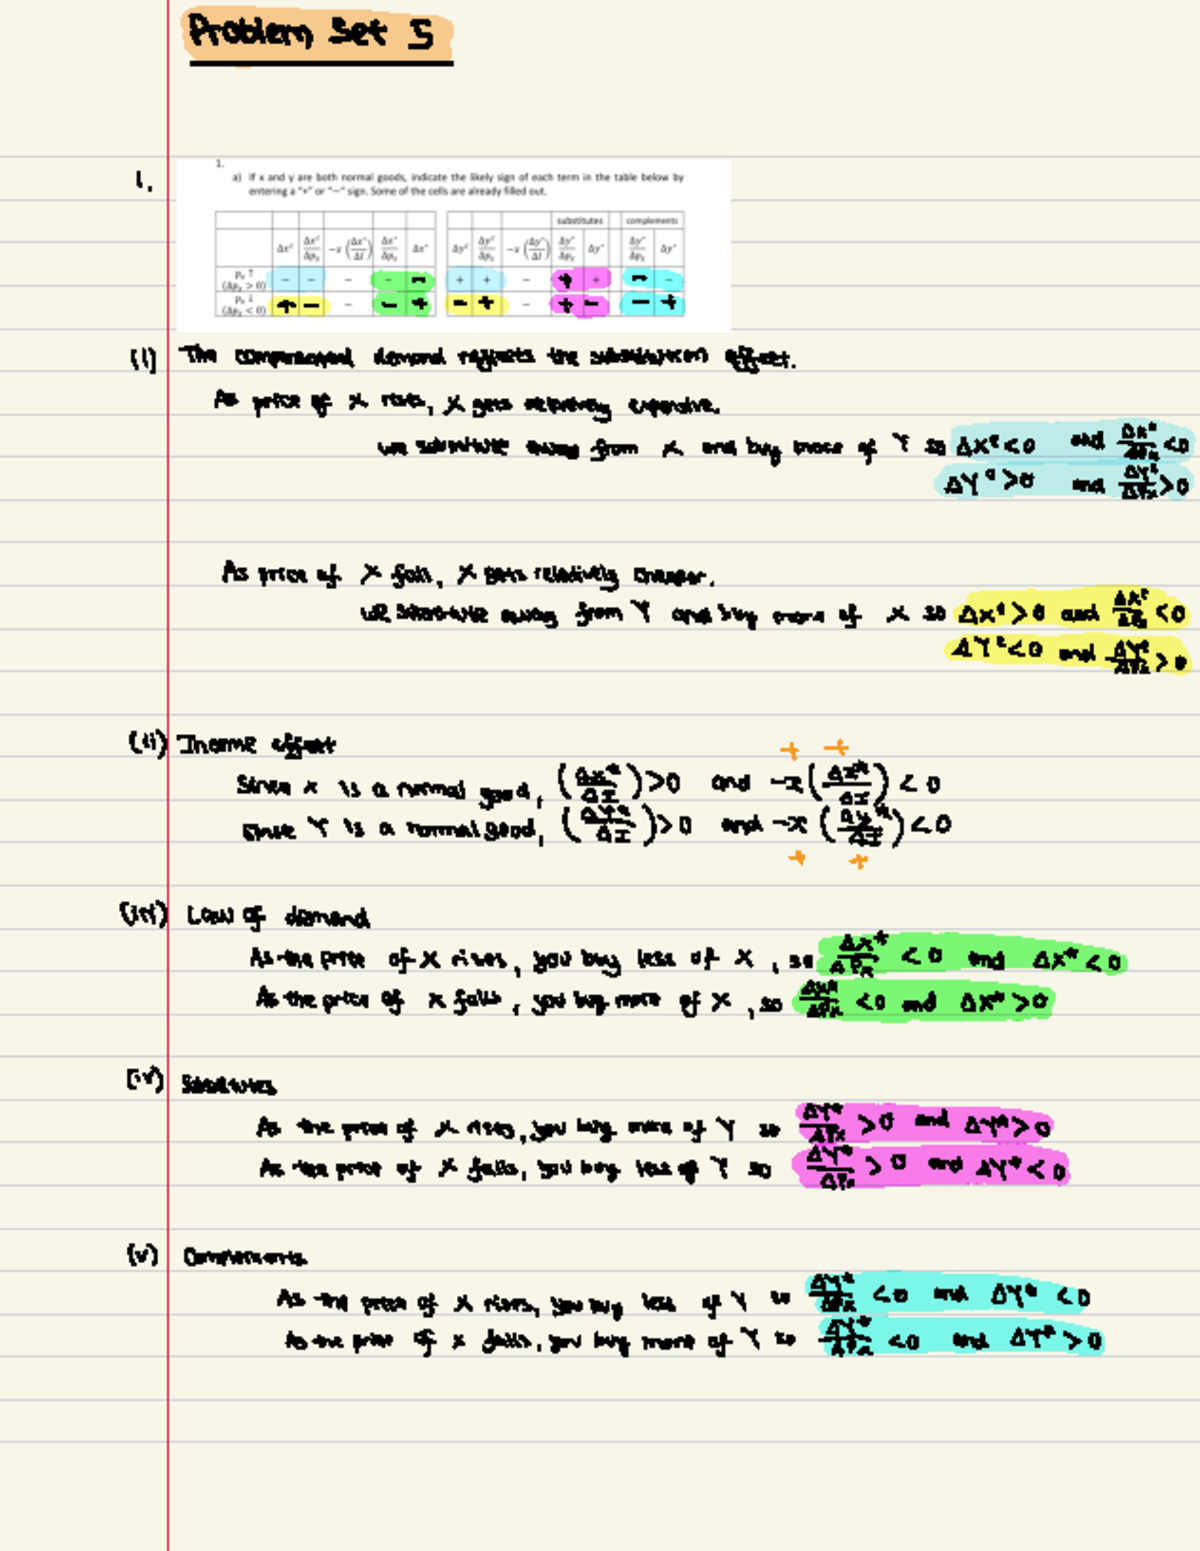 Problem Set 5
1.
1.
a) If x and y are both normal goods, indicate the likely sign of each term in the table below by
entering a "+" or "−" sign. Some of the cells are already filled out.
substitutes complements
Δxᶜ Δxᶜ/Δpₓ −x(Δx*/ΔI) Δx*/Δpₓ Δx* Δyᶜ Δyᶜ/Δpₓ −x(Δy*/ΔI) Δy*/Δpₓ Δy* Δy*/Δpₓ Δy*
pₓ ↑ (Δpₓ > 0) − − − − − + + − + + − −
pₓ ↓ (Δpₓ < 0) + − − − + − + − + − − +
(i) The compensated demand reflects the substitution effect.
As price of X rises, X gets relatively expensive.
we substitute away from X and buy more of Y so ΔXᶜ < 0 and ΔXᶜ/ΔPx < 0
ΔYᶜ > 0 and ΔYᶜ/ΔPx > 0
As price of X falls, X gets relatively cheaper.
we substitute away from Y and buy more of X so ΔXᶜ > 0 and ΔXᶜ/ΔPx < 0
ΔYᶜ < 0 and ΔYᶜ/ΔPx > 0
(ii) Income effect
+ +
Since X is a normal good, (ΔX*/ΔI) > 0 and −x(ΔX*/ΔI) < 0
Since Y is a normal good, (ΔY*/ΔI) > 0 and −x(ΔY*/ΔI) < 0
+ +
(iii) Law of demand
As the price of X rises, you buy less of X, so ΔX*/ΔPx < 0 and ΔX* < 0
As the price of X falls, you buy more of X, so ΔX*/ΔPx < 0 and ΔX* > 0
(iv) Substitutes
As the price of X rises, you buy more of Y so ΔY*/ΔPx > 0 and ΔY* > 0
As the price of X falls, you buy less of Y so ΔY*/ΔPx > 0 and ΔY* < 0
(v) Complements
As the price of X rises, you buy less of Y so ΔY*/ΔPx < 0 and ΔY* < 0
As the price of X falls, you buy more of Y so ΔY*/ΔPx < 0 and ΔY* > 0